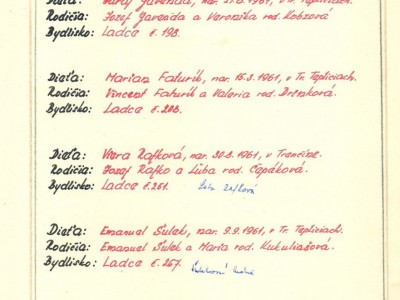 Rodičia: Jozef Javenda a Veronika rod. Kobzová
Bydlisko: Ladce č. 198.
Dieťa: Marian Faturík, nar. 15.3.1961, v Tr. Tepliciach.
Rodičia: Vincent Faturík a Valeria rod.
Bydlisko: Ladce č. 208.
Dieťa: Viera Rafková, nar. 30.8.1961, v Trenčíne.
Rodičia: Jozef Rafko a Ľuba rod. Čepáková.
Bydlisko: Ladce č. 251.
Dieťa: Emanuel Šulek, nar. 9.9.1961, v Tr. Tepliciach.
Rodičia: Emanuel Šulek a Maria rod. Kukuliašová.
Bydlisko: Ladce č. 267.